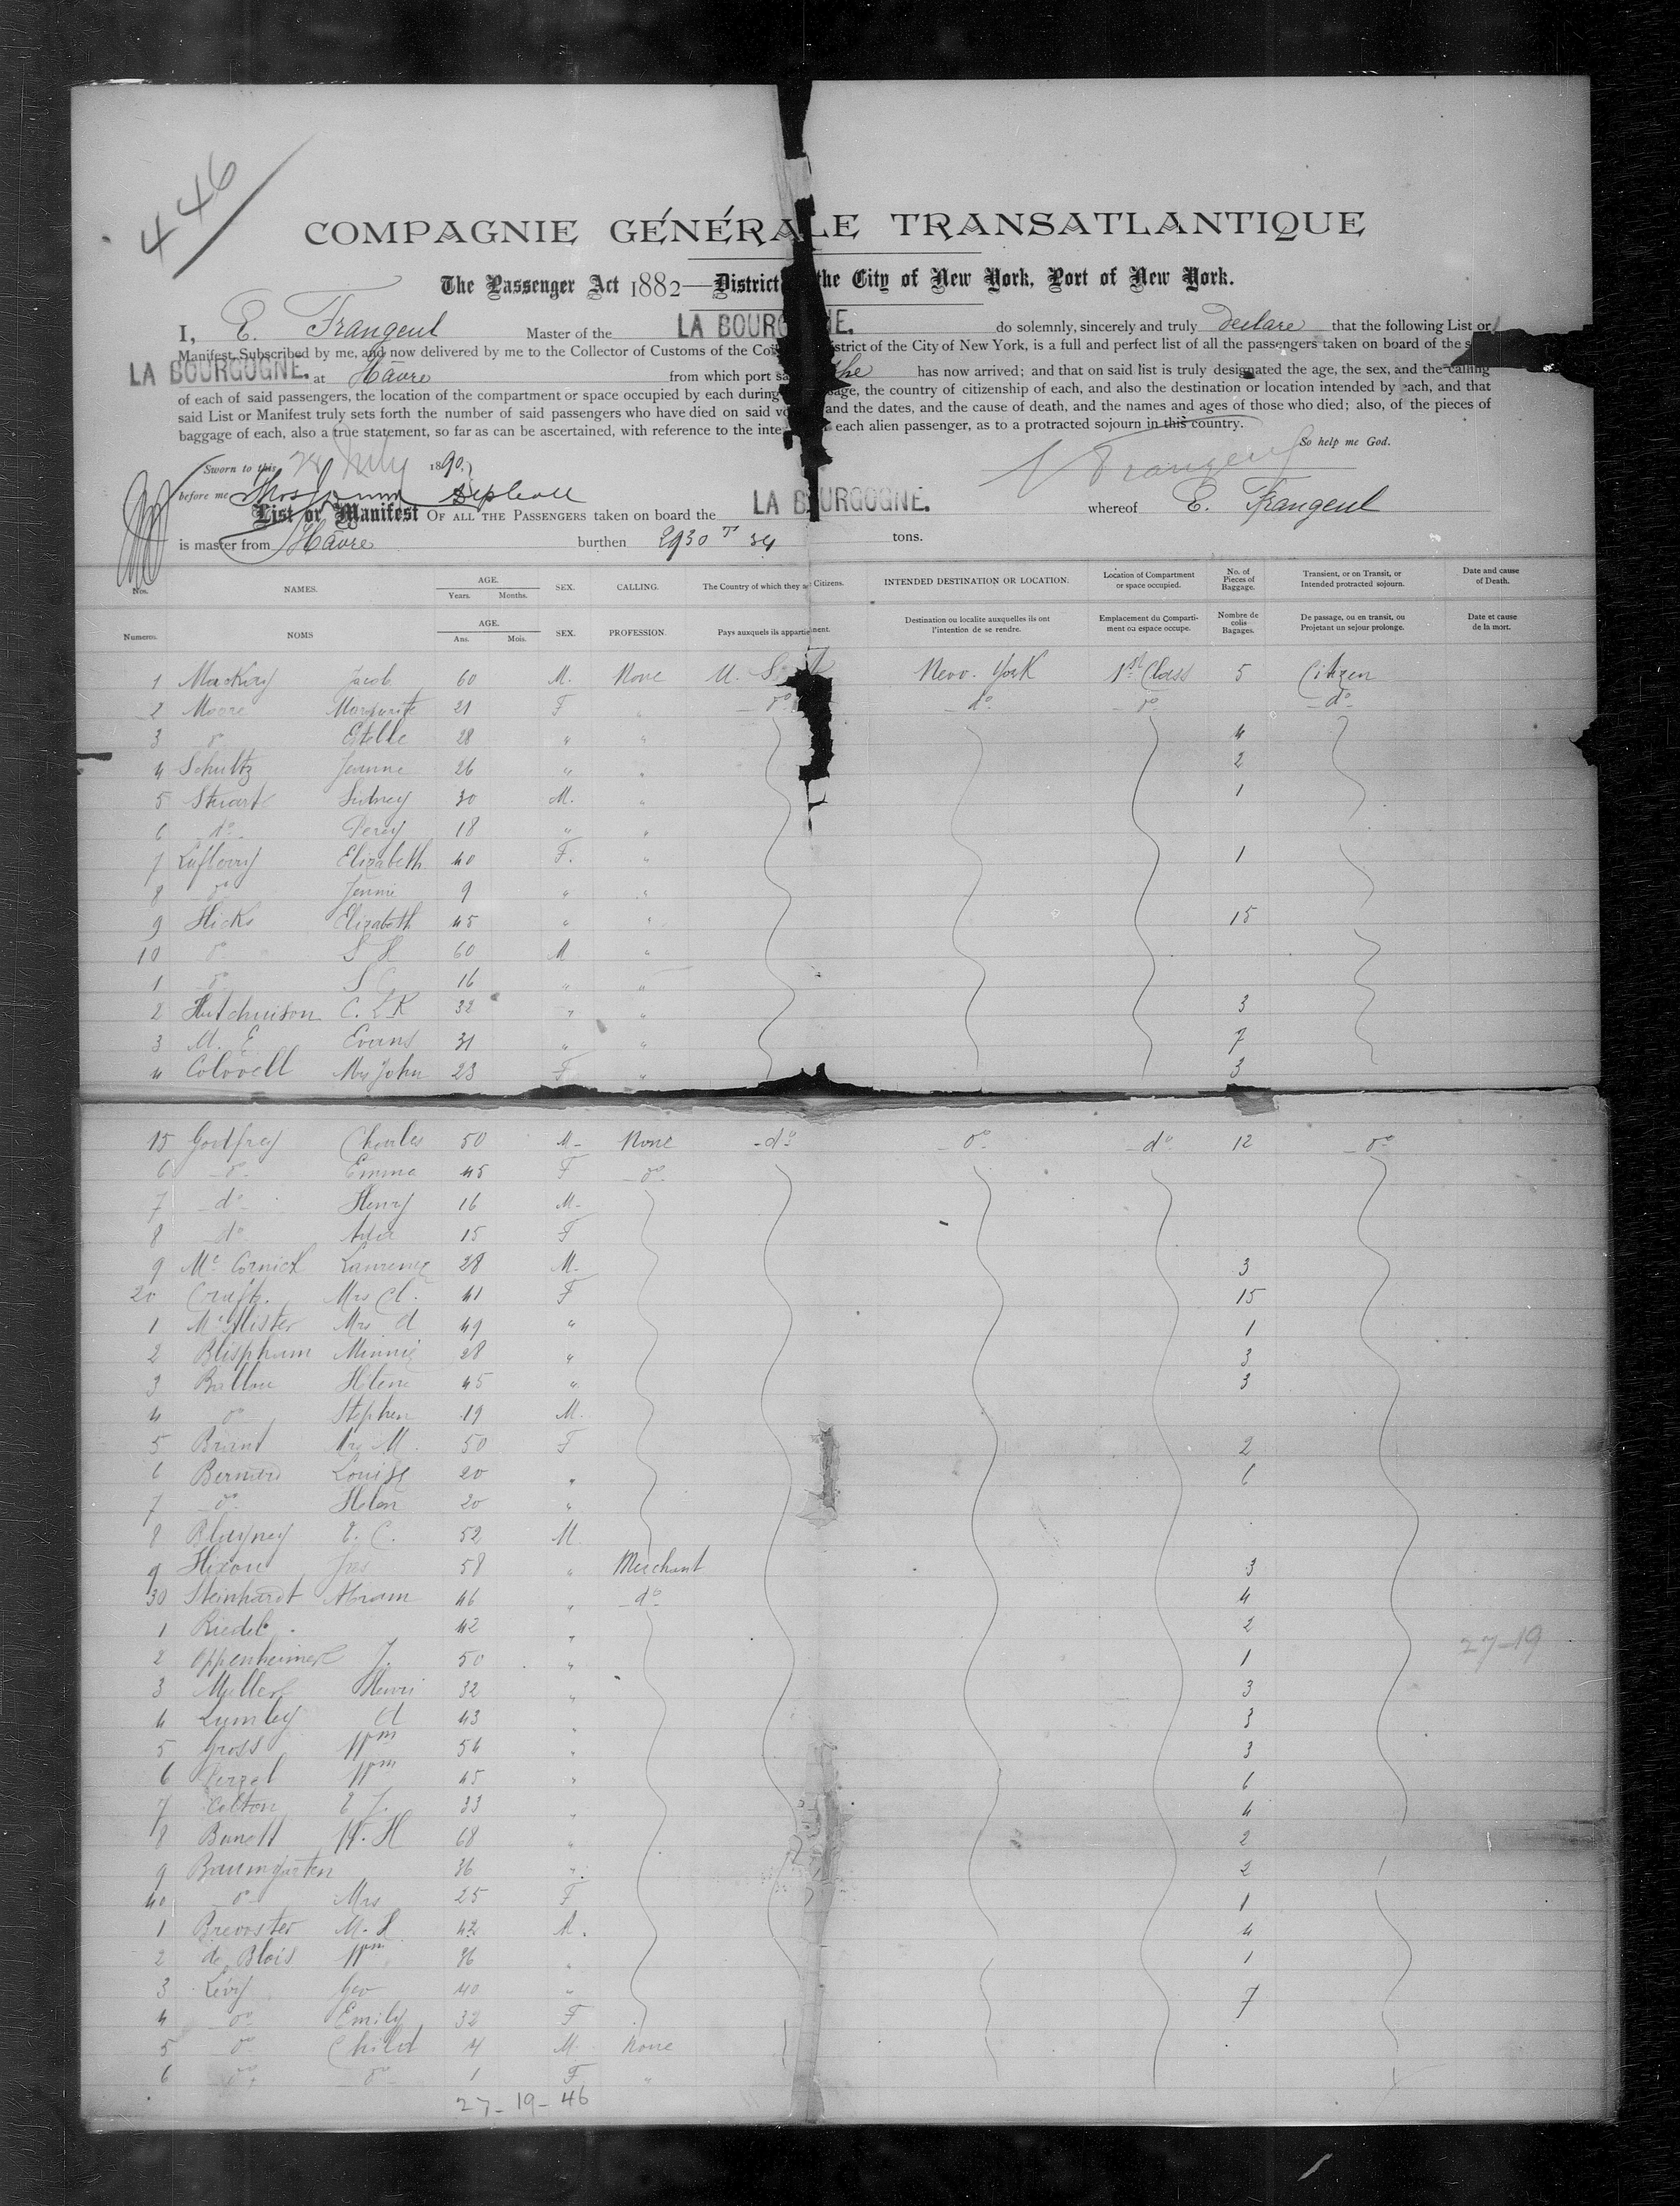 446
COMPAGNIE GÉNÉRALE TRANSATLANTIQUE
The Passenger Act 1882—District the City of New York, Port of New York.
I, E. Frangeul Master of the LA BOURG NE. do solemnly, sincerely and truly declare that the following List or
Manifest, Subscribed by me, and now delivered by me to the Collector of Customs of the Col strict of the City of New York, is a full and perfect list of all the passengers taken on board of the s
LA BOURGOGNE. at Hâvre from which port sa she has now arrived; and that on said list is truly designated the age, the sex, and the calling
of each of said passengers, the location of the compartment or space occupied by each during sage, the country of citizenship of each, and also the destination or location intended by each, and that
said List or Manifest truly sets forth the number of said passengers who have died on said vo and the dates, and the cause of death, and the names and ages of those who died; also, of the pieces of
baggage of each, also a true statement, so far as can be ascertained, with reference to the inte each alien passenger, as to a protracted sojourn in this country.
So help me God.
Sworn to this July 1890.
E Frangeul
before me
List or Manifest OF ALL THE PASSENGERS taken on board the LA BOURGOGNE. whereof E. Frangeul
is master from Hâvre burthen 2930 T 34 tons.
Nos. NAMES. AGE. Years. Months. SEX. CALLING. The Country of which they are Citizens. INTENDED DESTINATION OR LOCATION. Location of Compartment or space occupied. No. of Pieces of Baggage. Transient, or on Transit, or Intended protracted sojourn. Date and cause of Death.
Numeros. NOMS AGE. Ans. Mois. SEX. PROFESSION. Pays auxquels ils appartiennent. Destination ou localite auxquelles ils ont l'intention de se rendre. Emplacement du Compartiment ou espace occupe. Nombre de colis Bagages. De passage, ou en transit, ou Projetant un sejour prolonge. Date et cause de la mort.
1 Mackay Jacob 60 M. None U. S New. York 1st Class 5 Citizen
2 Moore Margurite 21 F " do do do do
3 do Estelle 28 " " 4
4 Schultz Jeanne 26 " " 2
5 Stuart Sidney 30 M. " 1
6 do Percy 18 " "
7 Elizabeth 40 F. " 1
8 do Jennie 9 " "
9 Hicks Elizabeth 45 " " 15
10 do S H 60 M "
1 do S 16 " "
2 Hutchinison C. L K 32 " " 3
3 M. E Evans 31 " " 7
4 Colwell Mrs John 23 F " 3
15 Godfrey Charles 50 M- None do do do 12 do
6 do Emma 45 F do
7 do Henry 16 M-
8 do 15 F
9 Mc Cornick Laurence 28 M- 3
20 Crafts. Mrs Cl. 41 F 15
1 Mc Alister Mrs A 49 " 1
2 Blispham Minnie 28 " 3
3 Ballou Helene 45 " 3
4 do Stephen 19 M.
5 Briant Mrs M. 50 F 2
6 Bernard Louise 20 " 6
7 do Helen 20 "
8 Blayney E. C. 52 M
9 Hixon Jas 58 " Merchant 3
30 Steinhardt Abram 46 " do 4
1 Riedel. 42 " 2
2 Oppenheimer J. 50 " 1
3 Muller Henri 32 " 3
4 Lumley A 43 " 3
5 Gross Wm 54 " 3
6 Perzel Wm 45 " 6
7 Colton E J. 33 " 4
8 W. H 68 " 2
9 Baumgarten 36 " 2
40 do Mrs 25 F 1
1 Brewster M. H 42 M. 4
2 de Blois Wm 36 " 1
3 Lévy Geo 40 " 7
4 do Emily 32 F
5 do Child 4 M. None
6 do do 1 F "
27-19
27-19-46